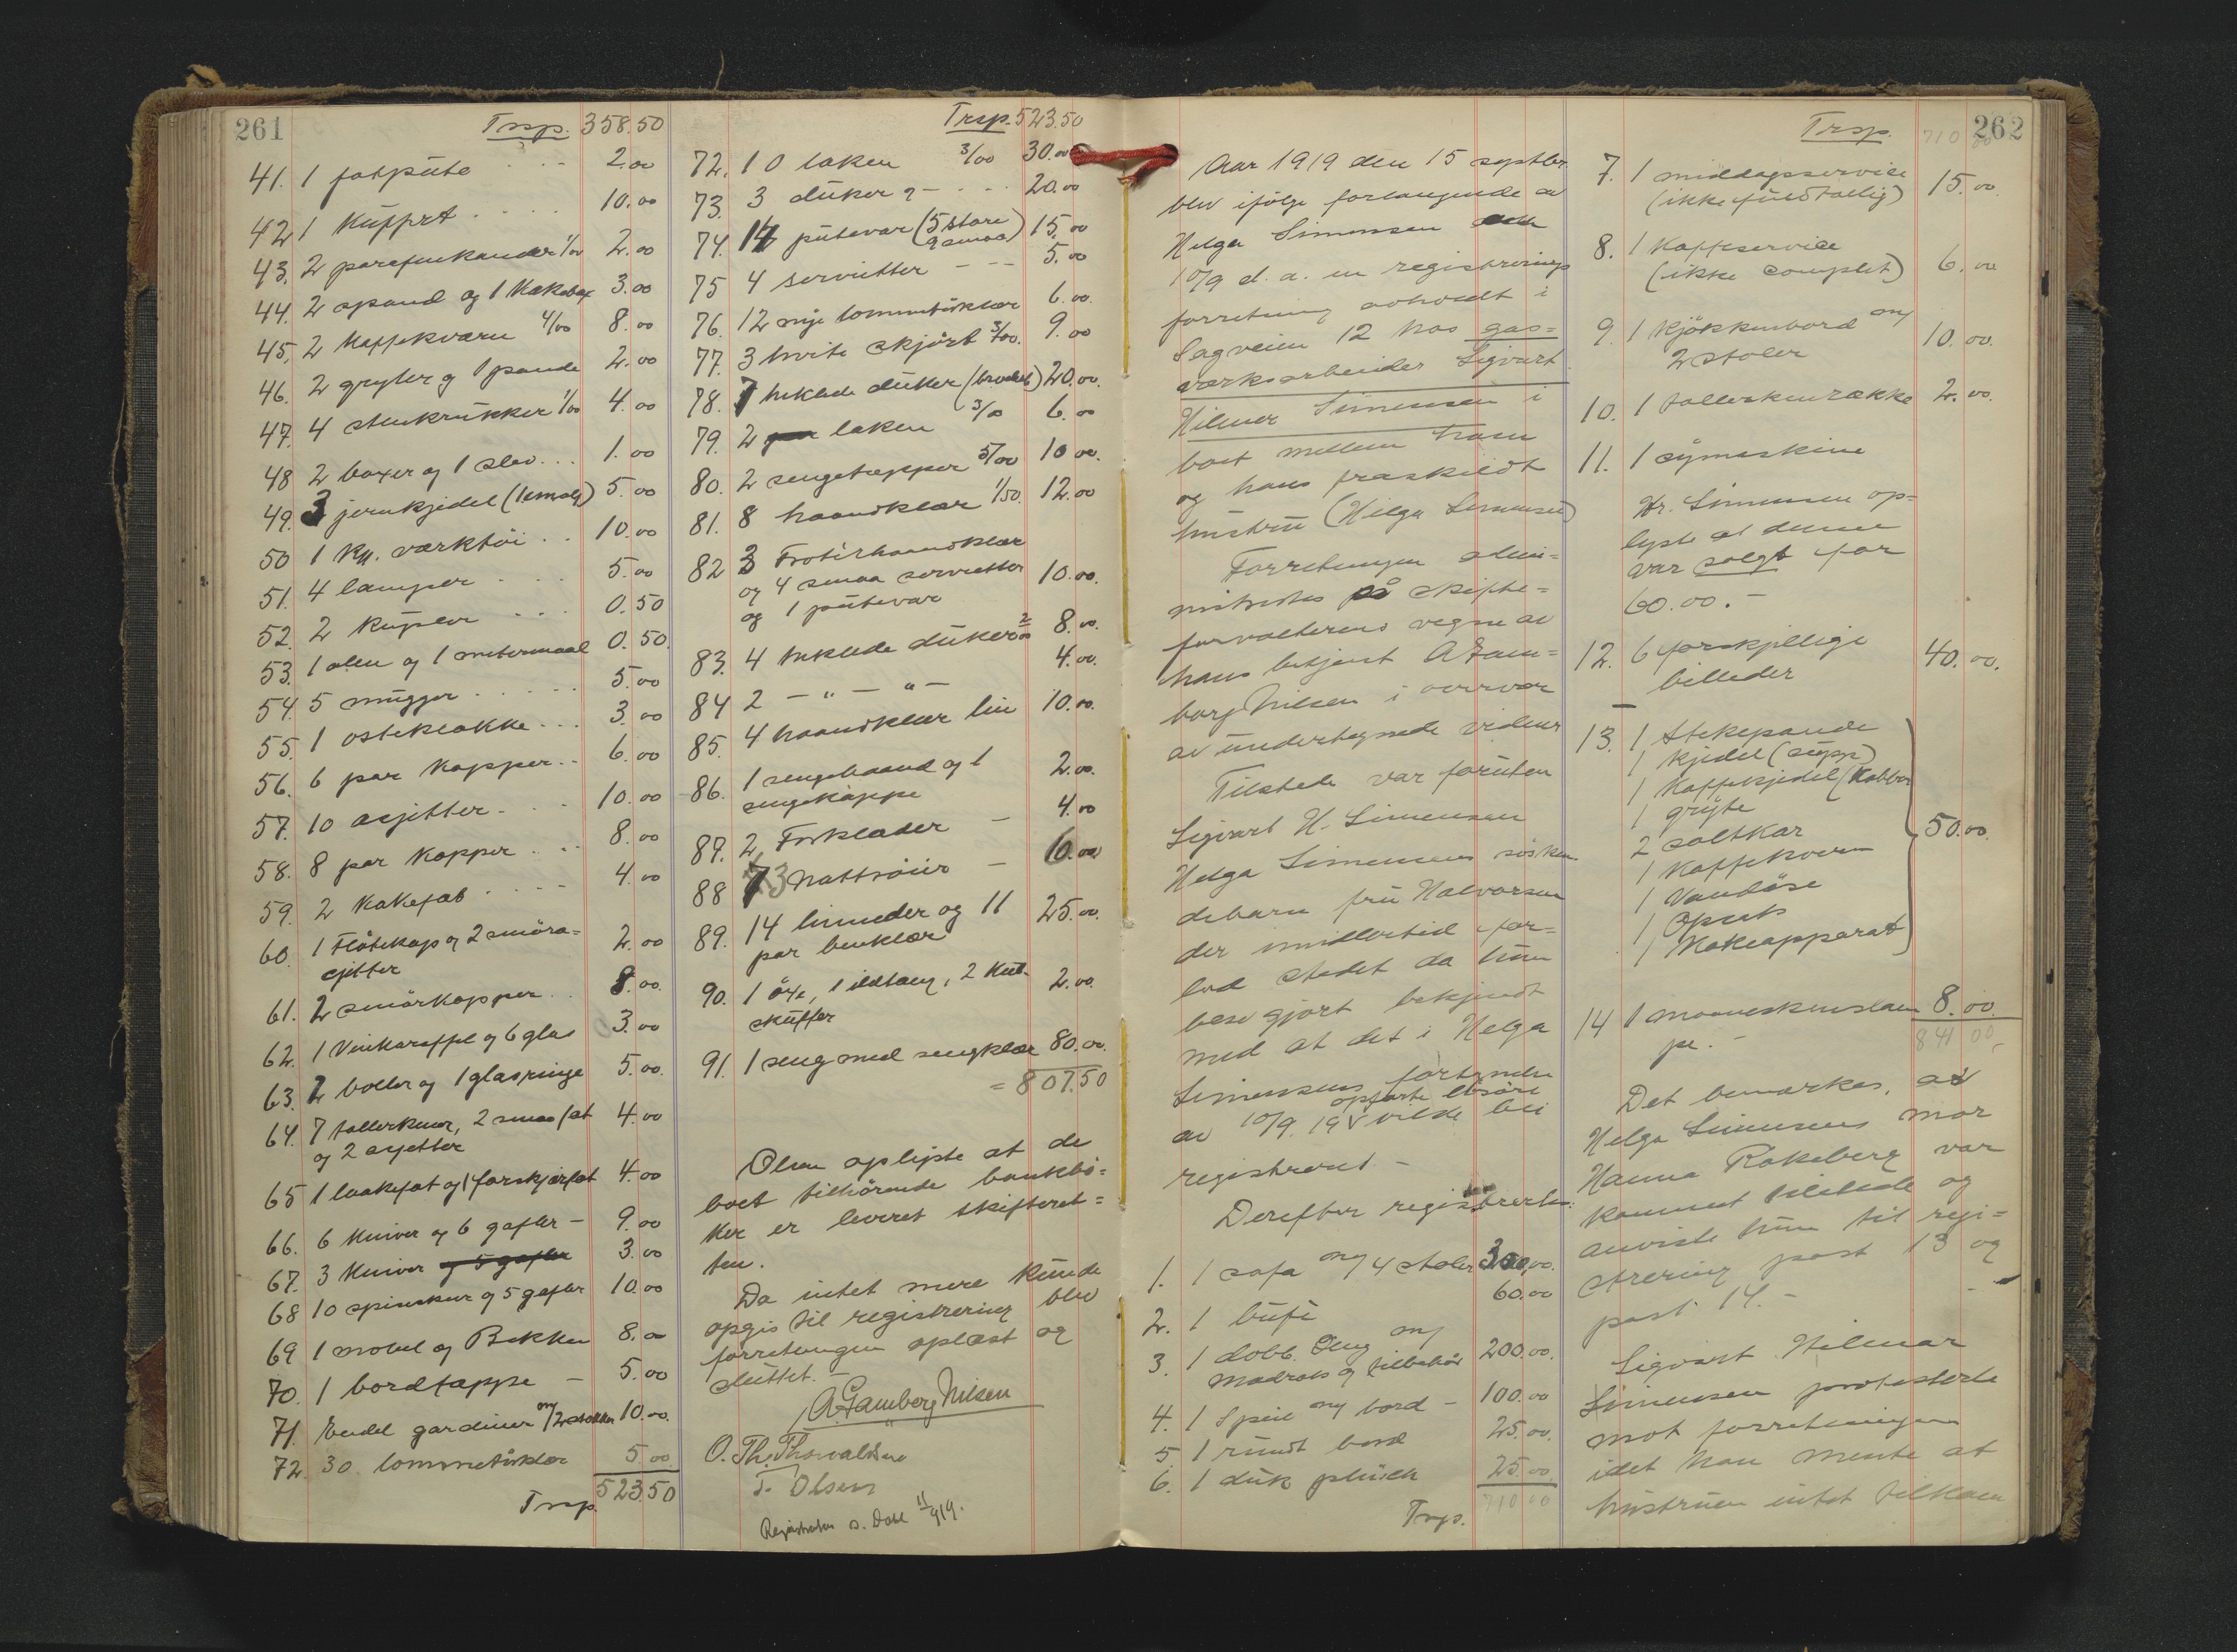 261
Trsp. 358.50
41. 1 fotpute 2.00
42 1 Kuffert 10.00
43. 2 parafinkander 1/00 2.00
44. 2 spand og 1 Kakebox 3.00
45. 2 Kaffekværn 4/00 8.00
46. 2 gryter og 1 pande 2.00
47. 4 stenkrukker 1/00 4.00
48 2 boxer og 1 slev 1.00
49. 3 jernkjedel (1 emalj) 5.00
50 1 Ku. værktöi 10.00
51. 4 lamper 5.00
52. 2 Kupler 0.50
53. 1 alen og 1 metermaal 0.50
54. 5 mugger 5.00
55. 1 osteklokke 3.00
56. 6 par Kopper 6.00
57. 10 asjetter 10.00
58. 8 par Kopper 8.00
59. 2 Kakefat 4.00
60. 1 Flötekop og 2 smöra=
sjetter 2.00
61. 2 smörkopper 8.00
62. 1 Vinkaraffel og 6 glas 3.00
63. 2 boller og 1 glasringe 5.00
64. 7 tallerkner, 2 smaa fat 4.00
og 2 asjetter
65 1 laakefat og 1 forskjærfat 4.00
66. 6 Kniver og 6 gafler - 9.00
67. 3 Kniver og 5 gafler 3.00
68 10 spiseskeer og 5 gafler 10.00
69 1 mobel og Bekken 8.00
70. 1 bordtæppe - 5.00
71. Endel gardiner m/ 2 stokker 10.00
72. 30 lommetörklær 5.00
Trsp. 523.50
Trsp. 523.50
72. 10 laken 3/00 30.00
73. 3 duker 20.00
74. 14 putevar (5 store 15.00
9 smaa)
75 4 servietter 5.00
76. 12 nye lommetörklær 6.00
77. 3 hvite skjört 3/00. 9.00
78. 7 heklede duker (broderte) 20.00
79. 2 laken 3/00 6.00
80. 2 sengetæpper 5/00 10.00
81. 8 haandklær 1/50 12.00
82 3 Frotérhaandklær
og 4 smaa servietter 10.00
og 1 putevar
83. 4 heklede duker 2/00 8.00
84 2 - " - " - 4.00
85. 4 haandklær lin 10.00
86. 1 sengebaand og 1 2.00
sengekappe
87. 2 Forklæder - 4.00
88 3 Nattröier - 6.00
89. 14 linneder og 11 25.00
par benklær
90. 1 öxe, 1 ildtang, 2 Kul- 2.00
skuffer
91. 1 seng med sengklær 80.00
= 807.50
Olsen oplyste at de
boet tilhörende bankbö=
ker er leveret skifteret=
ten.
Da intet mere kunde
opgis til registrering blev
forretningen oplæst og
sluttet. -
A Gamborg Nilsen
O. Th. Thorvaldsen
T. Olsen
Registrator s. Dahl 11/9 19.
262
Aar 1919 den 15 septbr.
blev ifölge forlangende av
Helga Simensen
10/9 d.a. en registrerings
forretning avholdt i
Sagveien 12 hos gas=
verksarbeider Sigvart
Hilmer Simensen i
boet mellem ham
og hans fraskildt
hustru (Helga Simensen)
Forretningen admi=
nistrertes på skifte=
forvalterens vegne av
hans betjent A Gam=
borg Nilsen i overvær
av undertegnede vidner
Tilstede var foruten
Sigvart H. Simensen
Helga Simensens sösken
debarn fru Halvorsen
der imidlertid for=
lod stedet da hun
blev gjort bekjendt
med at det i Helga
Simensens fortegnelse
opförte lösöre
av 10/9. 19 vilde bli
registrert. -
Derefter registrertes:
1. 1 sofa m/ 4 stoler 300.00
2. 1 bufe 60.00
3. 1 dobb. Seng m/
madrass og tilbehör 200.00
4. 1 Speil m/ bord - 100.00
5. 1 rundt bord 25.00
6. 1 duk plüsch 25.00
Trsp. 710 00
Trsp. 710 00
7. 1 middagsservice
(ikke fuldtallig) 15.00
8. 1 Kaffeservice
(ikke complet) 6.00
9. 1 Kjökkenbord m/
2 stoler 10.00
10. 1 tallerkenrække 2.00
11. 1 symaskine
Hr. Simensen op=
lyste at denne
var solgt for
60.00. -
12. 6 forskjellige
billeder 40.00
13. 1 Stekepande
1 kjedel (supp)
1 Kaffekjedel (Kobber
1 gryte
2 saltkar
1 Kaffekvern
1 Vandöse
1 Opsats
1 Kokeapparat
50.00
14 1 maaneskinslam 8.00
pe. -
841 00
Det bemerkes, at
Helga Simensens mor
Hanna Rakeberg var
kommet tilstede og
anviste hun til regi=
strering post 13 og
post 14. -
Sigvart Hilmar
Simensen protesterte
mot forretningen
idet han mente at
hustruen intet tilkom